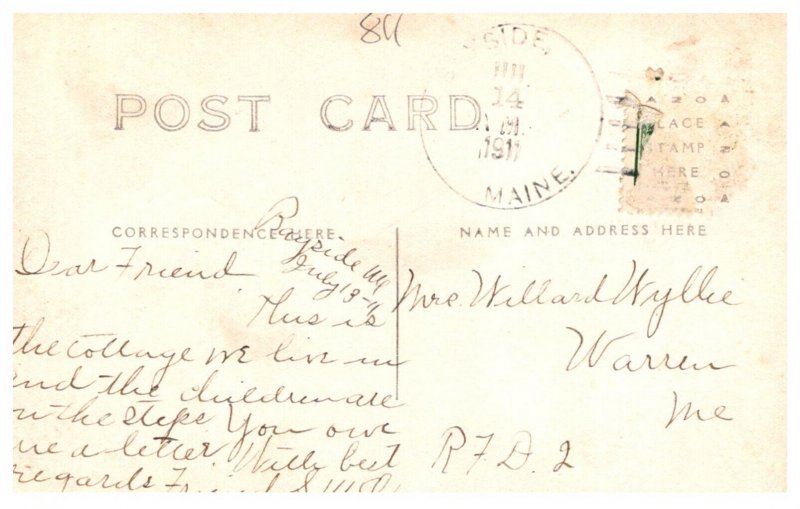 84
SIDE,
14
1911
MAINE.
POST CARD
PLACE
STAMP
HERE
CORRESPONDENCE HERE
NAME AND ADDRESS HERE
Bayside Me
July 13-11
Dear Friend
This is
the cottage we live in
and the children are
on the steps. You owe
me a letter. With best
regards Friend
Mrs. Willard Wyllie
Warren
Me
R.F.D. 2